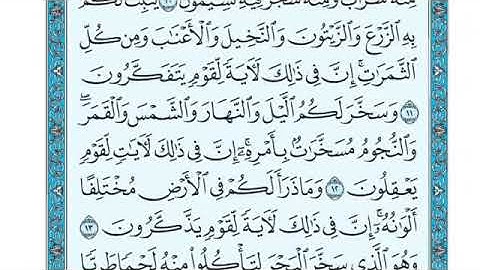 مِّنْهُ شَرَابٌ وَمِنْهُ شَجَرٌ فِيهِ تُسِيمُونَ ١٠ يُنۢبِتُ لَكُم
بِهِ ٱلزَّرْعَ وَٱلزَّيْتُونَ وَٱلنَّخِيلَ وَٱلْأَعْنَٰبَ وَمِن كُلِّ
ٱلثَّمَرَٰتِ ۗ إِنَّ فِى ذَٰلِكَ لَءَايَةً لِّقَوْمٍ يَتَفَكَّرُونَ
١١ وَسَخَّرَ لَكُمُ ٱلَّيْلَ وَٱلنَّهَارَ وَٱلشَّمْسَ وَٱلْقَمَرَ ۖ
وَٱلنُّجُومُ مُسَخَّرَٰتٌۢ بِأَمْرِهِۦٓ ۗ إِنَّ فِى ذَٰلِكَ لَءَايَٰتٍ لِّقَوْمٍ
يَعْقِلُونَ ١٢ وَمَا ذَرَأَ لَكُمْ فِى ٱلْأَرْضِ مُخْتَلِفًا
أَلْوَٰنُهُۥٓ ۗ إِنَّ فِى ذَٰلِكَ لَءَايَةً لِّقَوْمٍ يَذَّكَّرُونَ ١٣
وَهُوَ ٱلَّذِى سَخَّرَ ٱلْبَحْرَ لِتَأْكُلُوا۟ مِنْهُ لَحْمًا طَرِيًّا